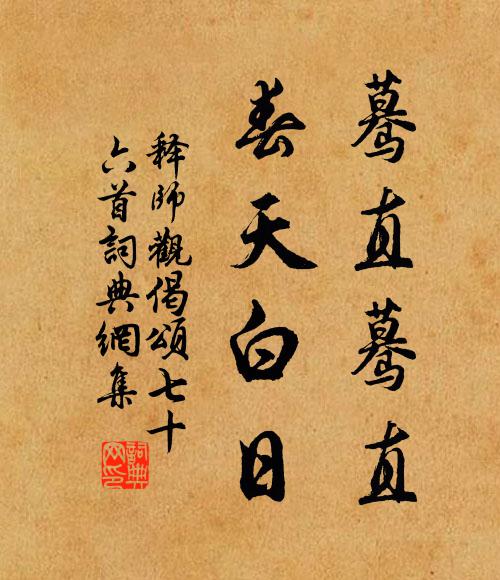 驀直驀直
春天白日
释師觀偈頌七十
六首詞典網集
詞典